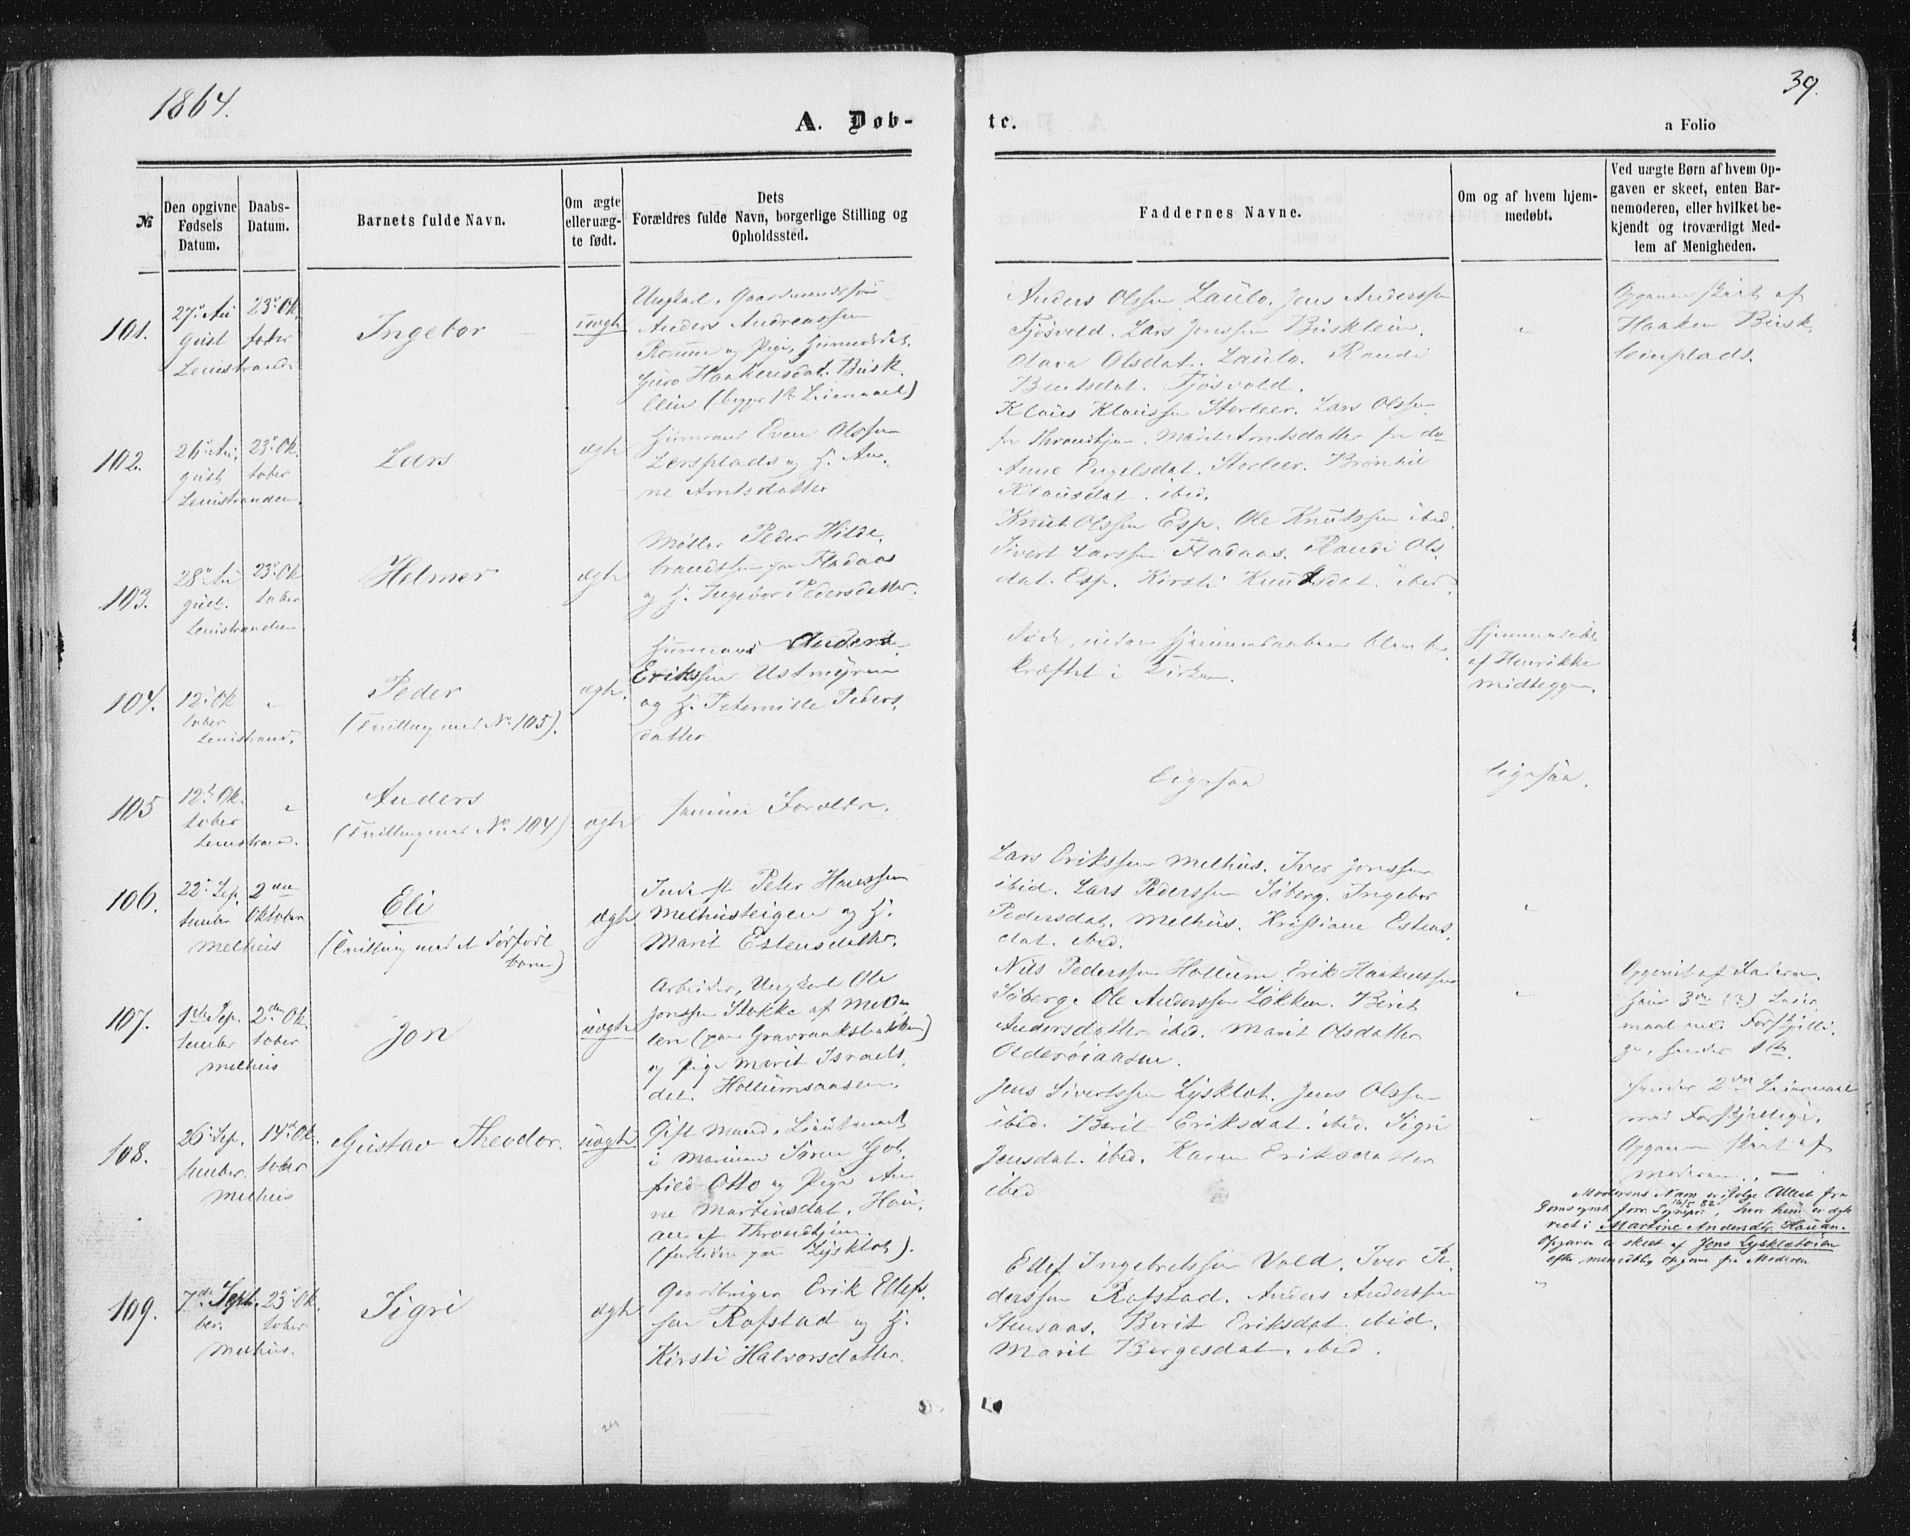 1864.
39.
A. Døb-
te.
a Folio
№
Den opgivne Fødsels Datum.
Daabs-Datum.
Barnets fulde Navn.
Om ægte eller uægte født.
Dets
Forældres fulde Navn, borgerlige Stilling og
Opholdssted.
Faddernes Navne.
Om og af hvem hjem-
medøbt.
Ved uægte Børn af hvem Op-
gaven er skeet, enten Bar-
nemoderen, eller hvilket be-
kjendt og troværdigt Med-
lem af Menigheden.
101.
27. Au
gust
Leinstranden
23. Ok
tober
Ingebor
uægte
Ungkarl, Gaardmandssøn
Anders Andreassen
Guro Haakensdat. Busk
lein (begges 1ste Leiermaal)
Anders Olssen Laulo. Jens Anderssen
Fjøsvold. Lars Jenssen Busklein.
Olava Olsdat. Laulo. Randi
Berntsdat. Fjøsvold.
Opgaven skeet af
Haaken Busk
leinplads.
102.
26. Au
gust
Leinstranden.
23. Ok
tober
Lars
ægte
Huusmand Even Olssen
Lersplads og H. An
ne Arntsdatter
Klaus Klaussen Storleer. Lars Olssen
fra Throndhjem. Marit Arntsdatter fra do
Anne Engelsdat. Storleer. Brønhil
Klausdat. ibid.
103.
28. Au
gust.
Leinstranden
23. Ok
tober
Helmer
ægte
Møller Peder Hilde
brandssen paa Fladaas
og H. Ingebor Pedersdatter.
Knut Olssen Esp. Ole Knutssen ibid.
Sivert Larssen Fladaas. Randi Ols
dat. Esp. Kirsti Knutsdat. ibid.
104.
12. Ok
tober
Leinstrand.
Peder
(Tvilling med No. 105).
ægte.
Huusmand Anders
Erikssen Ustmyren
og H. Peternille Peders
datter
Døde, inden Hjemmedaaben blev be
kræftet i Kirken.
Hjemmedøbt
af Henrikke
Midteggen.
105
12. Ok
tober
Leinstrand.
Anders
(Tvilling med No. 104)
ægte
samme Forældre.
ligesaa
ligesaa.
106.
22. Sep
tember
Melhus
2den
Oktober
Eli
(Tvilling med et dødfødt
barn)
ægte.
Inderst Peter Hanssen
Melhusteigen og H.
Marit Estensdatter.
Lars Erikssen Melhus. Iver Jonssen
ibid. Lars Pederssen Søberg. Ingebor
Pedersdat. Melhus. Kristiane Estens
dat. ibid.
107.
1ste Sep
tember
Melhus
2den Ok
tober
Jon
uægte
Arbeider, Ungkarl Ole
Jonssen Stokke af Mel
len (paa Gravraaksbakken)
og Pige Marit Israels
dat. Hollumsaasen.
Nils Pederssen Hollum. Erik Haakenssen
Søberg. Ole Anderssen Løkken. Berit
Andersdatter ibid. Marit Olsdatter
Olderøiaasen.
Opgivet af Faderen.
hans 3die (?) Leier
maal med Forskjelli
ge, hendes 1ste
108.
26. Sep
tember.
Melhus
14. Ok
tober
Gustav Theodor.
uægte
Gift Mand, Lieutenant
i Marinen Søren Got
fried Otto og Pige An
ne Martinsdat. Hau
an af Throndhjem
(fortiden paa Lysklæt).
Jens Sivertssen Lysklæt. Jens Olssen
ibid. Berit Eriksdat. ibid. Sigri
Jensdat. ibid. Karen Eriksdatter
ibid
hendes 2den Leiermaal
med Forskjellige.
Opgaven skeet af
Moderen.
Moderens Navn er ifølge Attest fra
Martine Andersdtr Hauan.
Opgaven er skeet af Jens Lysklætøien
efter mundtlig Opgave fra Moderen
109.
7de Septem
ber.
Melhus.
23. Ok
tober
Sigri
ægte
Gaardbruger Erik Ellefs
søn Rofstad og H.
Kirsti Halvorsdatter.
Ellef Ingebretssen Vold. Iver Pe
derssen Rofstad. Anders Anderssen
Stensaas. Berit Eriksdat. ibid.
Marit Børgesdat. ibid.